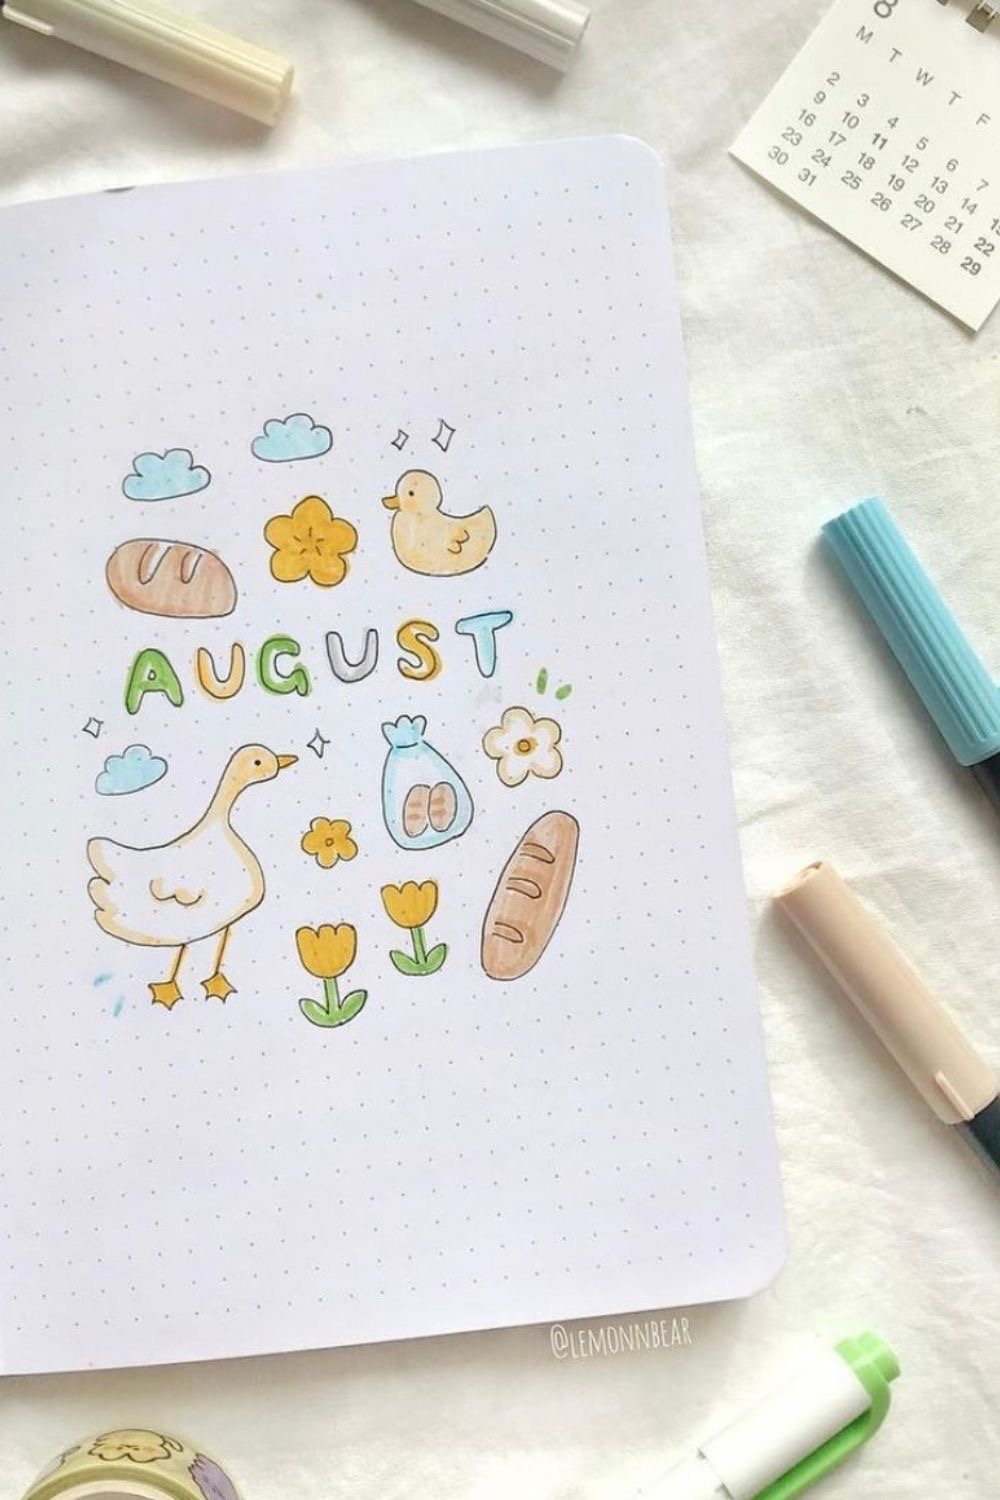 8
M T W T F
2 3 4 5 6 7
9 10 11 12 13 14 15
16 17 18 19 20 21 22
23 24 25 26 27 28 29
30 31
AUGUST
@LEMONNBEAR